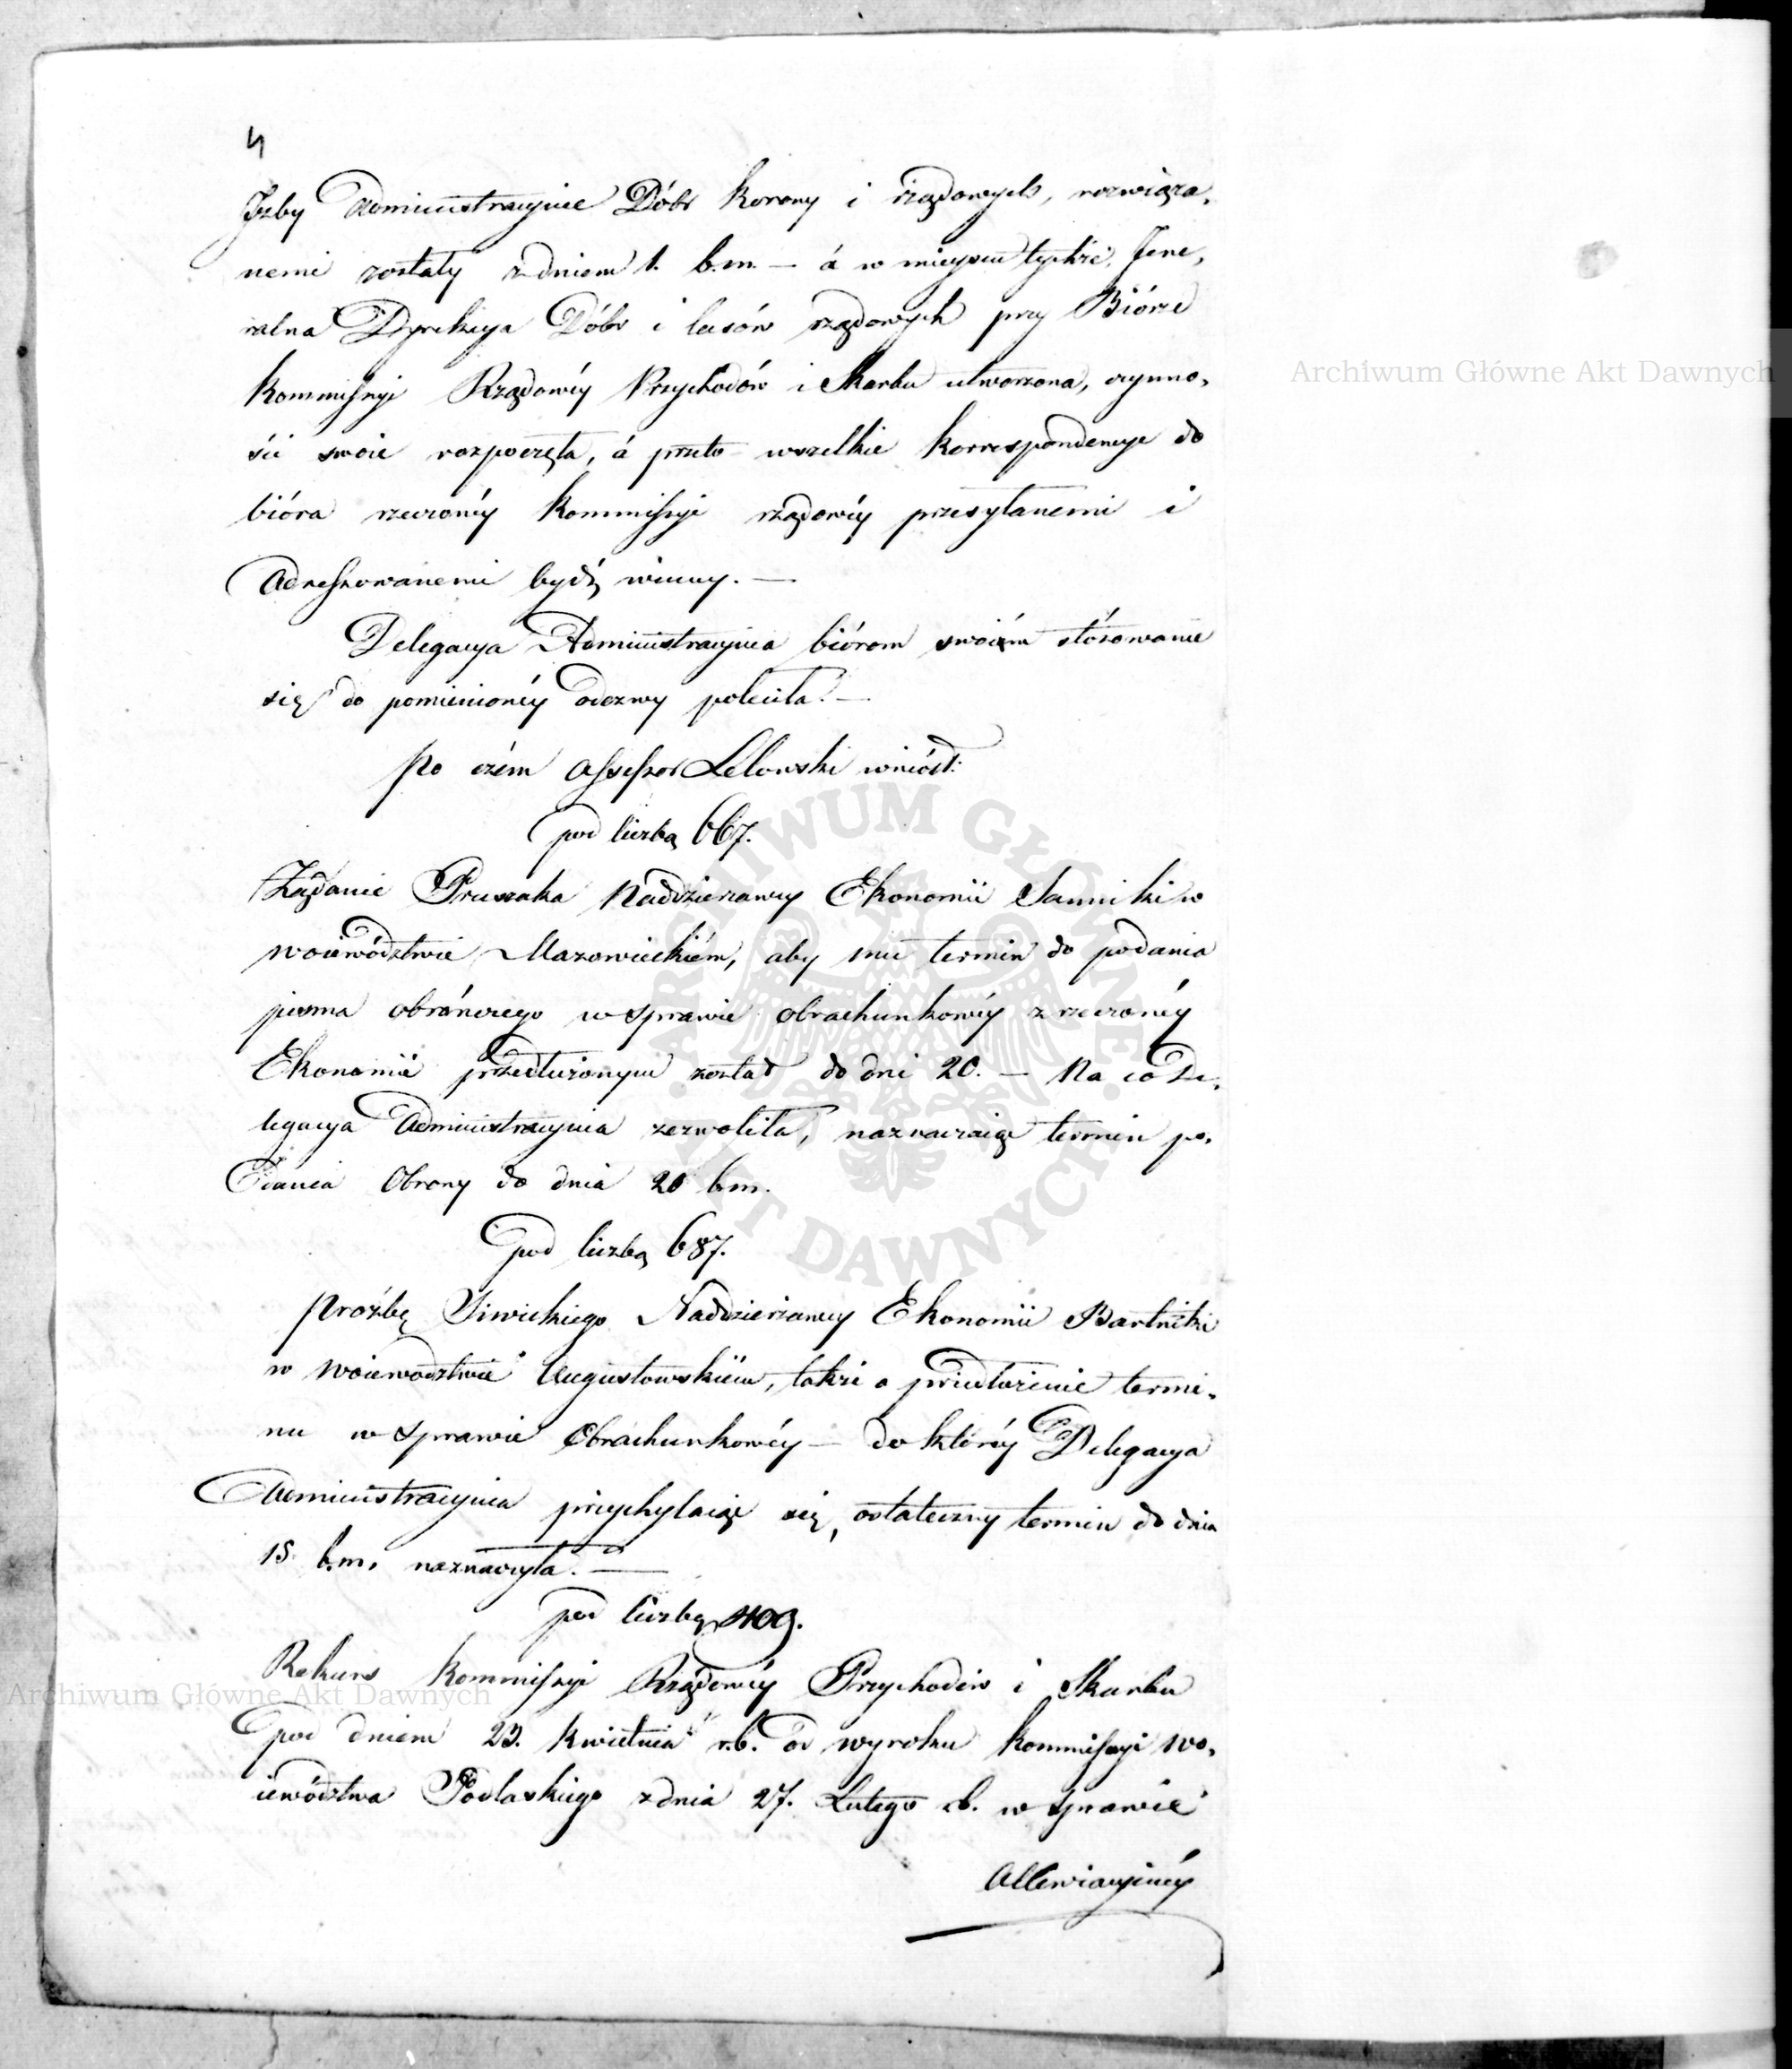 4
Izby Administracyine Dóbr Korony i rządowych, rozwiąza,
nemi zostały z dniem 1. b.m. — á w mieyscu tychże, Jene,
ralna Dyrekcya Dóbr i lasów rządowych przy Biórze
Kommissyi Rządowéy Przychodów i Skarbu utworzona, czynno,
ści swoie rozpoczęła, á przeto wszelkie korrespondencye do
bióra rzeczonéy Kommissyi rządowéy przesyłanemi i
Adressowanemi bydź winny. —
Delegacya Administracyina biórom swoim stósowanie
się do pomienionéy odezwy poleciła. —
Po czém Assessor Lelowski wniósł:
pod liczbą 667.
Żądanie Pruszaka Naddzierzawcy Ekonomii Sanniki w
Woiewództwie Mazowieckiém, aby mu termin do podania
pisma obrończego w sprawie obrachunkowéy z rzeczonéy
Ekonomii przedłużonym został do dni 20. — Na co De,
legacya Administracyina zezwoliła, naznaczaiąc termin po,
dania Obrony do dnia 20 b.m.
pod liczbą 687.
Proźbę Siwickiego Naddzierżawcy Ekonomii Bartniki
w Woiewodztwie Augustowskiém, także o przedłużenie termi,
nu w sprawie Obrachunkowéy — do któréy Delegacya
Administracyina przychylaiąc się, ostateczny termin do dnia
15. b.m. naznaczyła. —
pod liczbą 409.
Rekurs Kommissyi Rządowéy Przychodów i Skarbu
pod dniem 23. Kwietnia r.b. od wyroku Kommissyi Wo,
iewództwa Podlaskiego z dnia 27. Lutego r.b. w sprawie
Allewiacyinéy
Archiwum Główne Akt Dawnych
Archiwum Główne Akt Dawnych
ARCHIWUM GŁÓWNE · AKT DAWNYCH ·